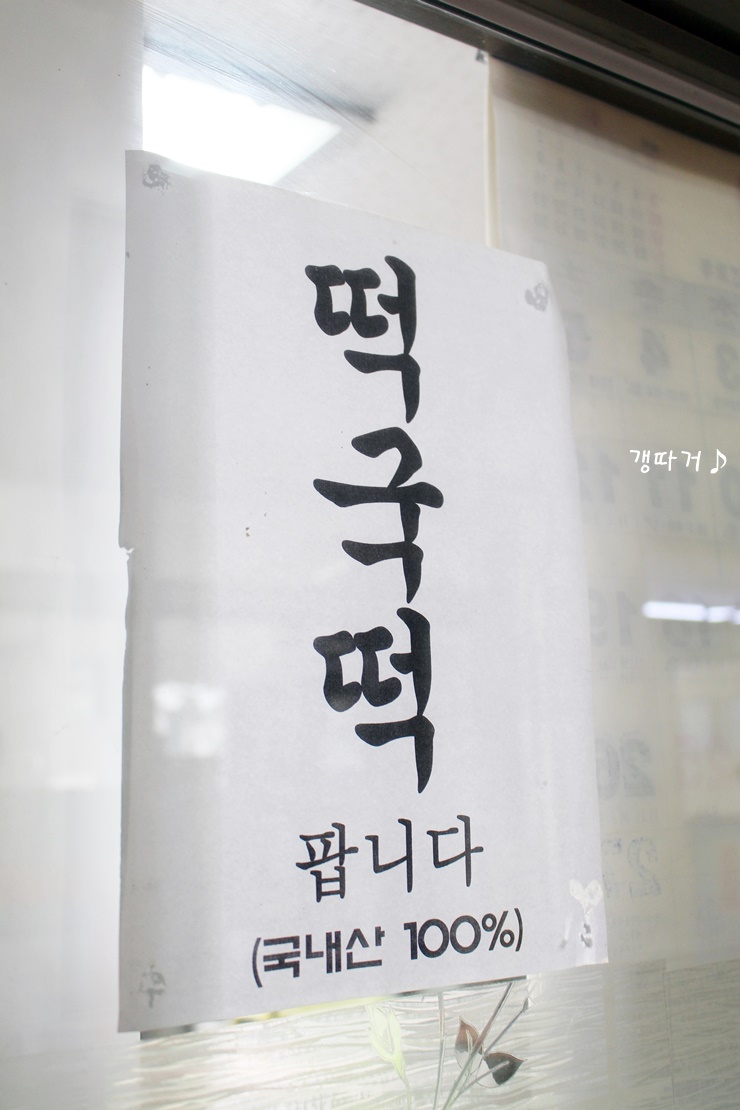 떡국떡
팝니다
(국내산 100%)
갱따거♪